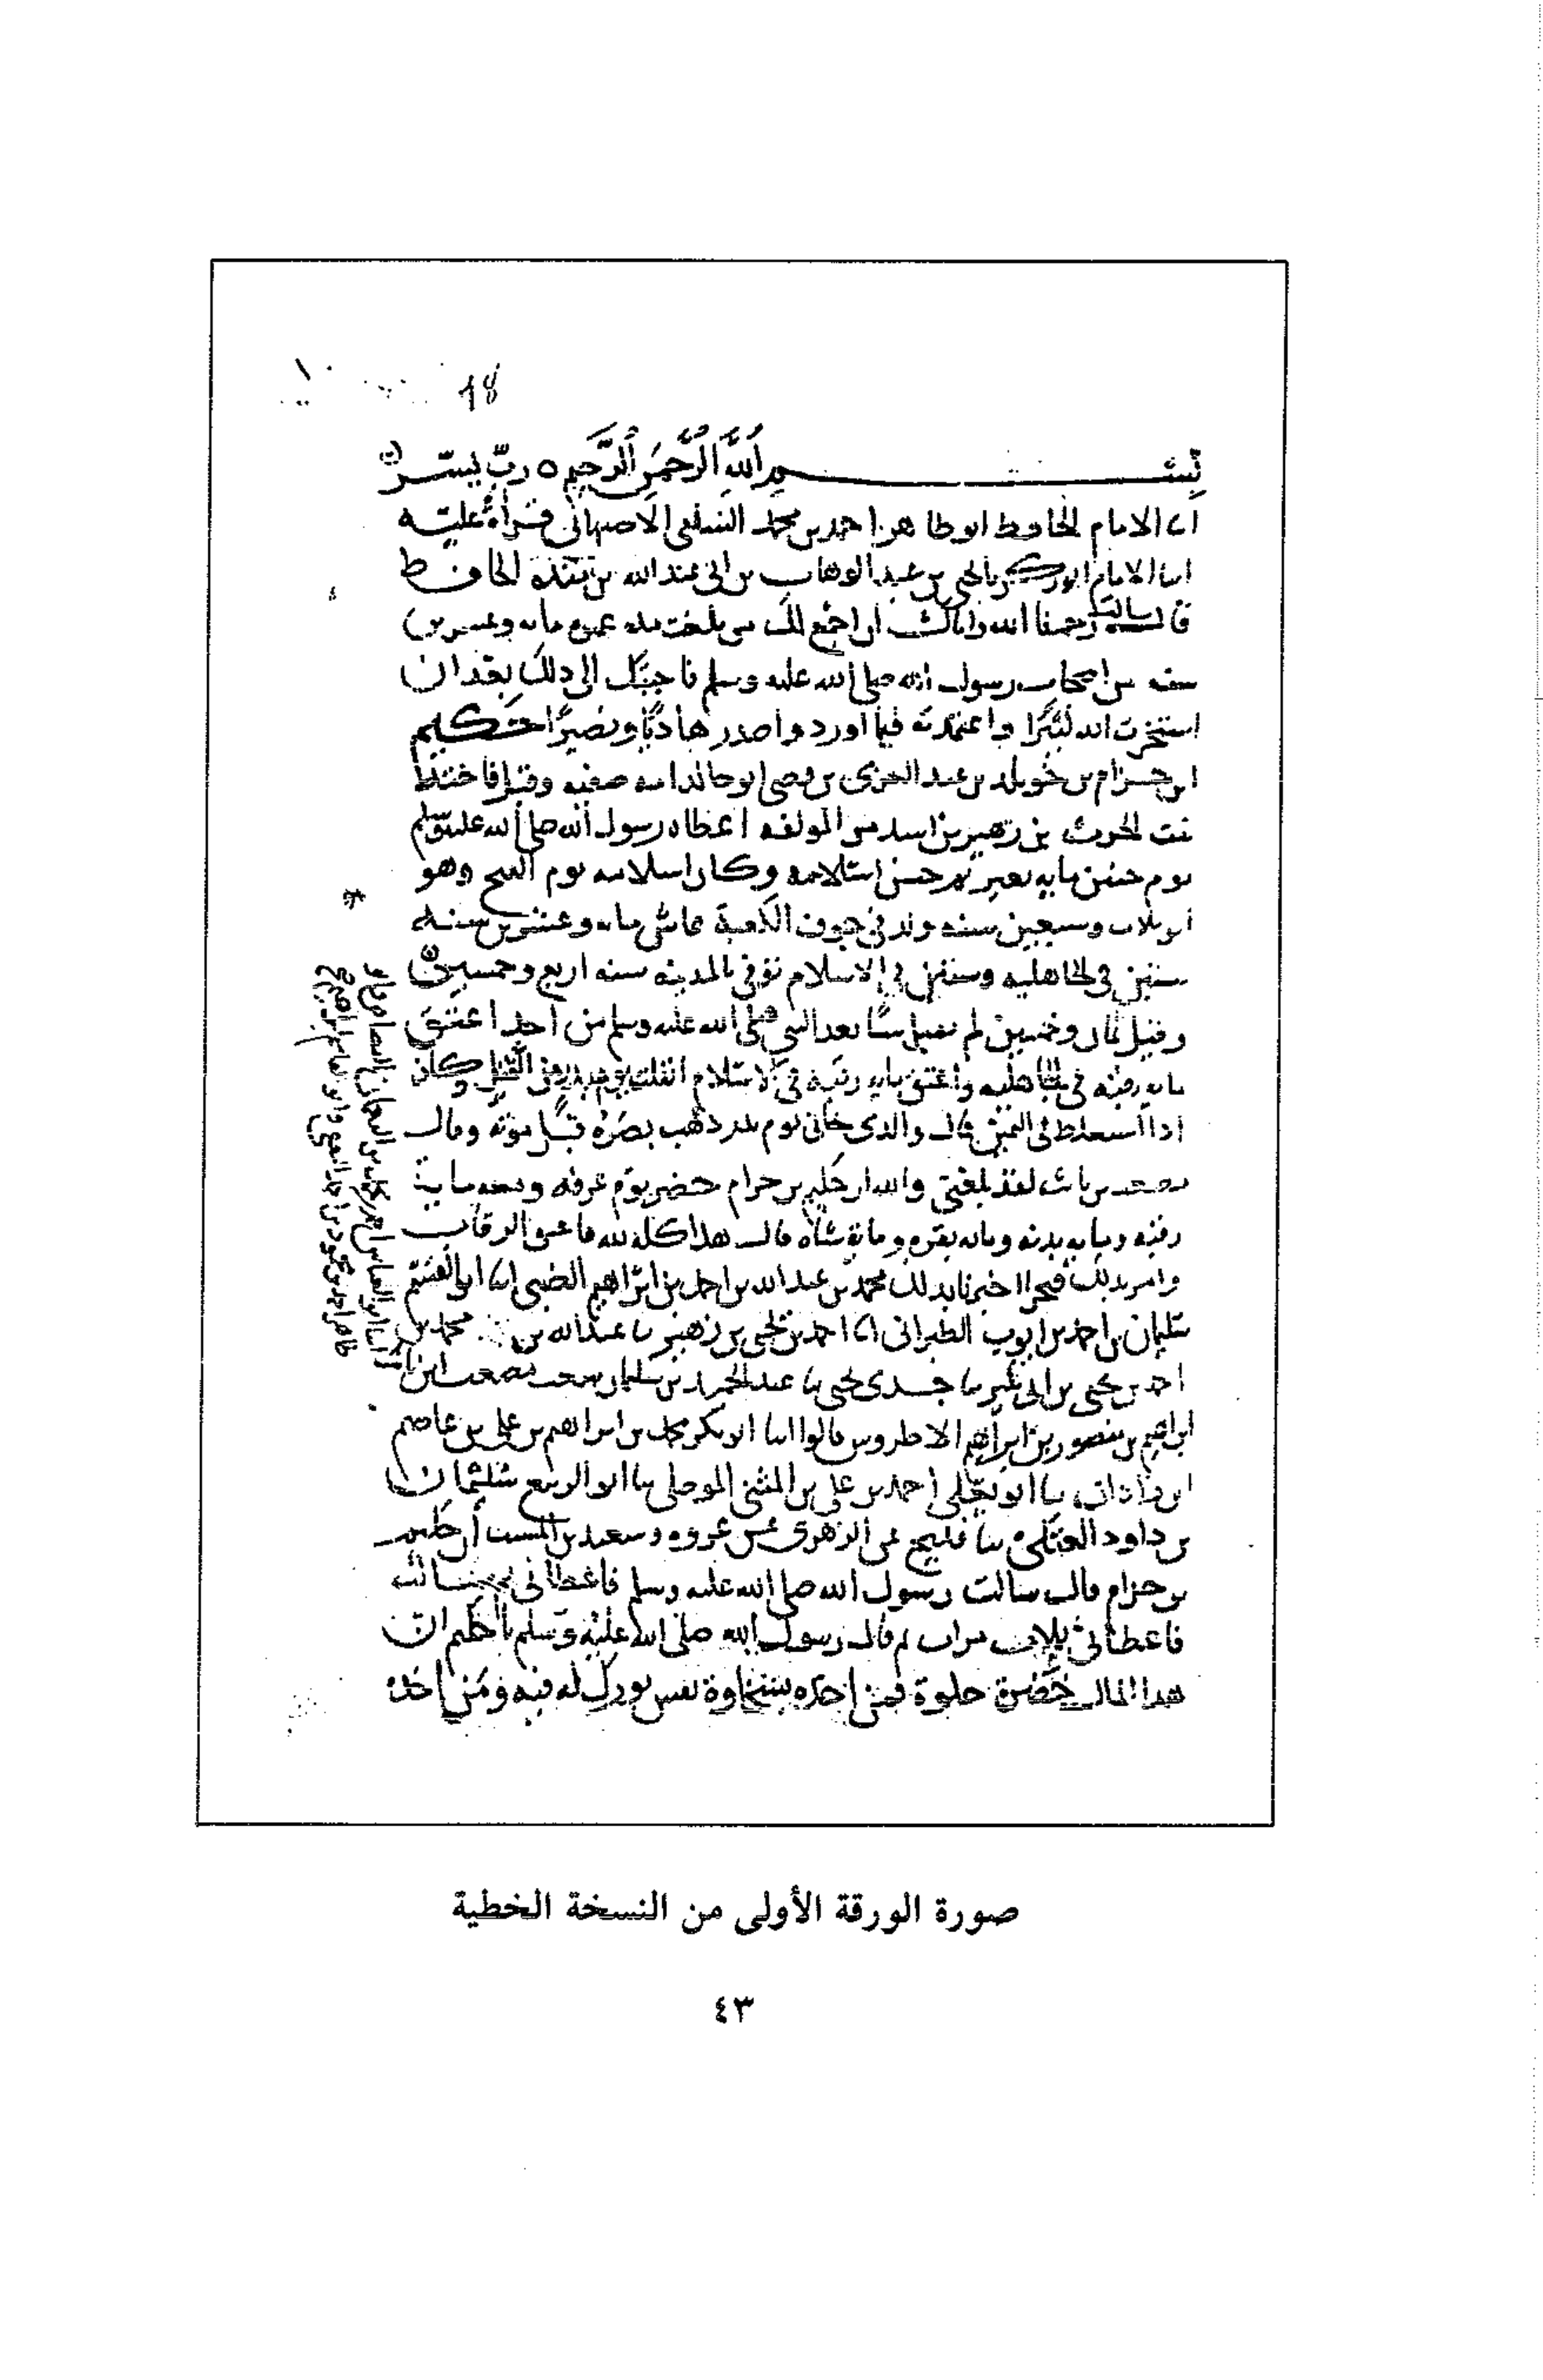 18
بسم اللهِ الرَّحمَنِ الرَّحيمِ ه ربِّ يسّر
الامام الحافظ ابو طاهر احمد بن محمد السلفي الاصبهاني قراءة عليه
الامام ابو زكريا يحيى بن عبد الوهاب بن ابي عبد الله بن منده الحافظ
رحمنا الله واياك ان اجمع لك من بلغت مدة عمره مايه وعشرين
سنه من اصحاب رسول الله صلى الله عليه وسلم فاجبتك الى ذلك بعد ان
استخرت الله واعتمدته فيما اورد واصدر هاديًا ونصيرًا حكيم
ابن حزام بن خويلد بن عبد العزى بن قصي ابو خالد امه صفيه وقيل فاخته
بنت الحرث بن زهير بن اسد من المولفه اعطاه رسول الله صلى الله عليه وسلم
يوم حنين مايه بعير ثم حسن اسلامه وكان اسلامه يوم الفتح وهو
ابن ثلاث وسبعين سنه ولد في جوف الكعبة عاش مايه وعشرين سنه
ستين في الجاهليه وستين في الاسلام توفي بالمدينه سنه اربع وخمسين
وقيل ثمان وخمسين لم يقبل شيا بعد النبي صلى الله عليه وسلم من احد اعتق
مايه رقبه في الجاهليه واعتق مايه رقبه في الاسلام انفلت يوم بدر من القتل وكان
اذا استغلظ في اليمين قال والذي نجاني يوم بدر ذهب بصره قبل موته وقال
مصعب بن ثابت لقد بلغني والله ان حكيم بن حزام حضر يوم عرفه ومعه ماية
رقبه ومايه بدنه ومايه بقره وماية شاه قال هذا كله لله فاعتق الرقاب
وامر بذلك فنحر اخبرنا بذلك محمد بن عبد الله بن احمد بن ابراهيم الضبي ابو القسم
سليمان بن احمد بن ايوب الطبراني احمد بن يحيى بن زهير عبد الله بن محمد بن
احمد بن يحيى بن ابي بكير جدي يحيى عبد الحميد بن سليمان سمعت مصعب ابن ثابت
ابراهيم بن منصور بن ابراهيم قالوا ابو بكر محمد بن ابراهيم بن علي بن عاصم
ابن زاذان ابو يعلى احمد بن علي بن المثنى الموصلي ابو الربيع سليمان
بن داود العتكي فليح عن الزهري عن عروه وسعيد بن المسيب ان حكيم
بن حزام قال سالت رسول الله صلى الله عليه وسلم فاعطاني
فاعطاني ثلاث مرات ثم قال رسول الله صلى الله عليه وسلم يا حكيم ان
هذا المال خضرة حلوة فمن اخذه بسخاوة نفس بورك له فيه ومن اخذه
صورة الورقة الأولى من النسخة الخطية
٤٣